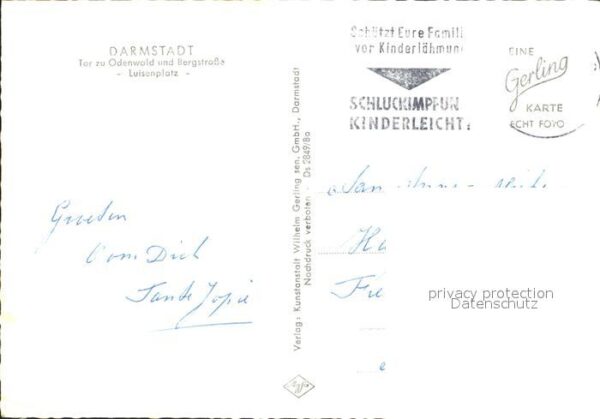 DARMSTADT
Tor zu Odenwald und Bergstraße
- Luisenplatz -
Schützt Eure Famili
vor Kinderlähmun
SCHLUCKIMPFUN
KINDERLEICHT:
EINE
Gerling
KARTE
ECHT FOTO
Verlag: Kunstanstalt Wilhelm Gerling sen. GmbH., Darmstadt
Nachdruck verboten Ds 2849/8a
Groeten
Tante Jopie
Ha
Fre
e
privacy protection
Datenschutz
Agfa